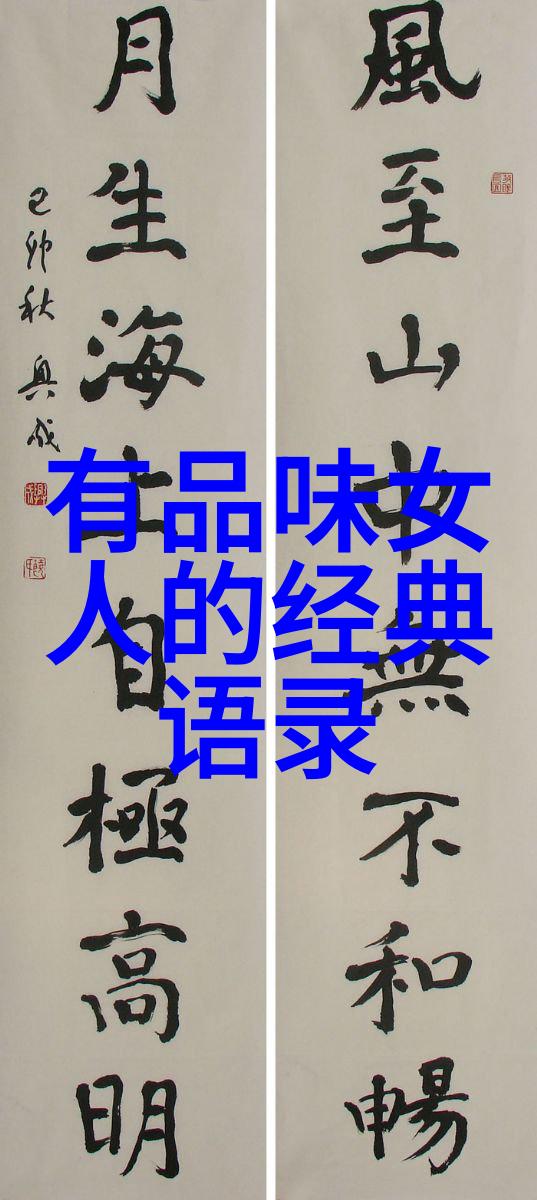 風至山中無不和暢
月生海上自極高明
己卯秋
有品味女
人的经典
语录